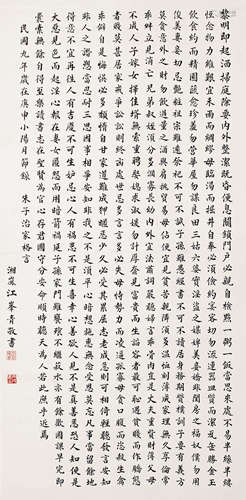 黎明即起洒掃庭除要內外整潔既昏便息關鎖門戶必親自檢點一粥一飯當思來處不易半絲半縷
恆念物力維艱宜未雨而綢繆毋臨渴而掘井自奉必須儉約宴客切勿留連器具質而潔瓦缶勝金玉
飲食約而精園蔬愈珍饈勿營華屋勿謀良田三姑六婆實淫盜之媒婢美妾嬌非閨房之福奴僕勿用
俊美妻妾切忌艷粧祖宗雖遠祭祀不可不誠子孫雖愚經書不可不讀居身務期質樸訓子要有義方
莫貪意外之財莫飲過量之酒與肩挑貿易勿佔便宜見貧苦親鄰須多溫恤刻薄成家理無久享倫常
乖舛立見消亡兄弟叔姪須分多潤寡長幼內外宜法肅辭嚴聽婦言乖骨肉豈是丈夫重貲財薄父母
不成人子嫁女擇佳壻毋索重聘娶媳求淑女勿計厚奩見富貴而生諂容者最可恥遇貧窮而作驕態
者賤莫甚居家戒爭訟訟則終凶處世戒多言言多必失毋恃勢力而凌逼孤寡毋貪口腹而恣殺生禽
乖僻自是悔誤必多頹惰自甘家道難成狎暱惡少久必受其累屈志老成急則可相倚輕聽發言安知
非人之譖愬當忍耐三思因事相爭安知非我之不是須平心暗想施惠無念受恩莫忘凡事當留餘地
得意不宜再往人有喜慶不可生妒忌心人有禍患不可生喜幸心善欲人見不是真善惡恐人知便是
大惡見色而起淫心報在妻女匿怨而用暗箭禍延子孫家門和順雖饔飧不繼亦有餘歡國課早完即
囊橐無餘自得至樂讀書志在聖賢為官心存君國守分安命順時聽天為人若此庶乎近焉
民國九年歲在庚申小陽月節錄 朱子治家格言
湘嵐江峯青敬書